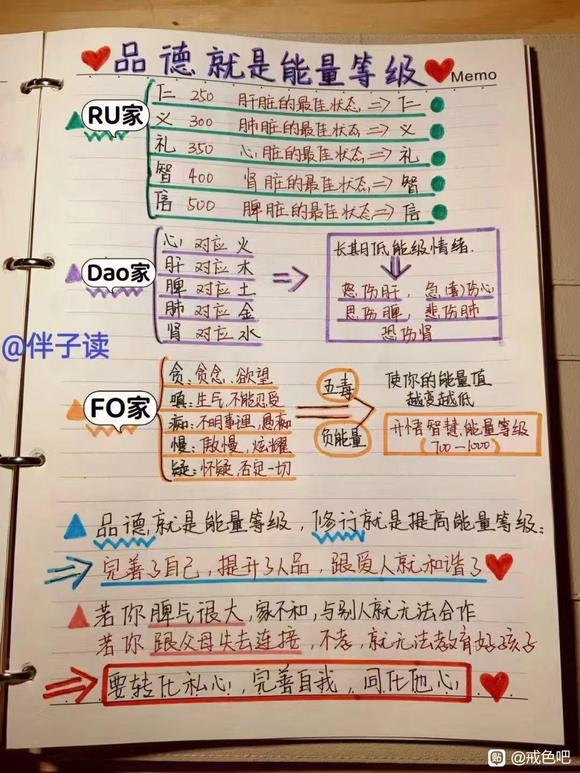 品德就是能量等级
Memo
RU家
仁 250 肝脏的最佳状态 => 仁
义 300 肺脏的最佳状态 => 义
礼 350 心脏的最佳状态 => 礼
智 400 肾脏的最佳状态 => 智
信 500 脾脏的最佳状态 => 信
Dao家
心 对应 火
肝 对应 木
脾 对应 土
肺 对应 金
肾 对应 水
长期低能级情绪.
怒伤肝, 急(喜)伤心
思伤脾, 悲伤肺
恐伤肾
@伴子读
FO家
贪: 贪念、欲望
嗔: 生气、不能忍受
痴: 不明事理, 愚痴
慢: 傲慢, 炫耀
疑: 怀疑, 否定一切
五毒
负能量
使你的能量值
越变越低
开悟智慧,能量等级
(700-1000)
品德就是能量等级, 修行就是提高能量等级:
完善了自己, 提升了人品, 跟爱人就和谐了
若你脾气很大, 家不和, 与别人就无法合作
若你跟父母失去连接, 不孝, 就无法教育好孩子
要转化私心, 完善自我, 同化他心
贴 @戒色吧